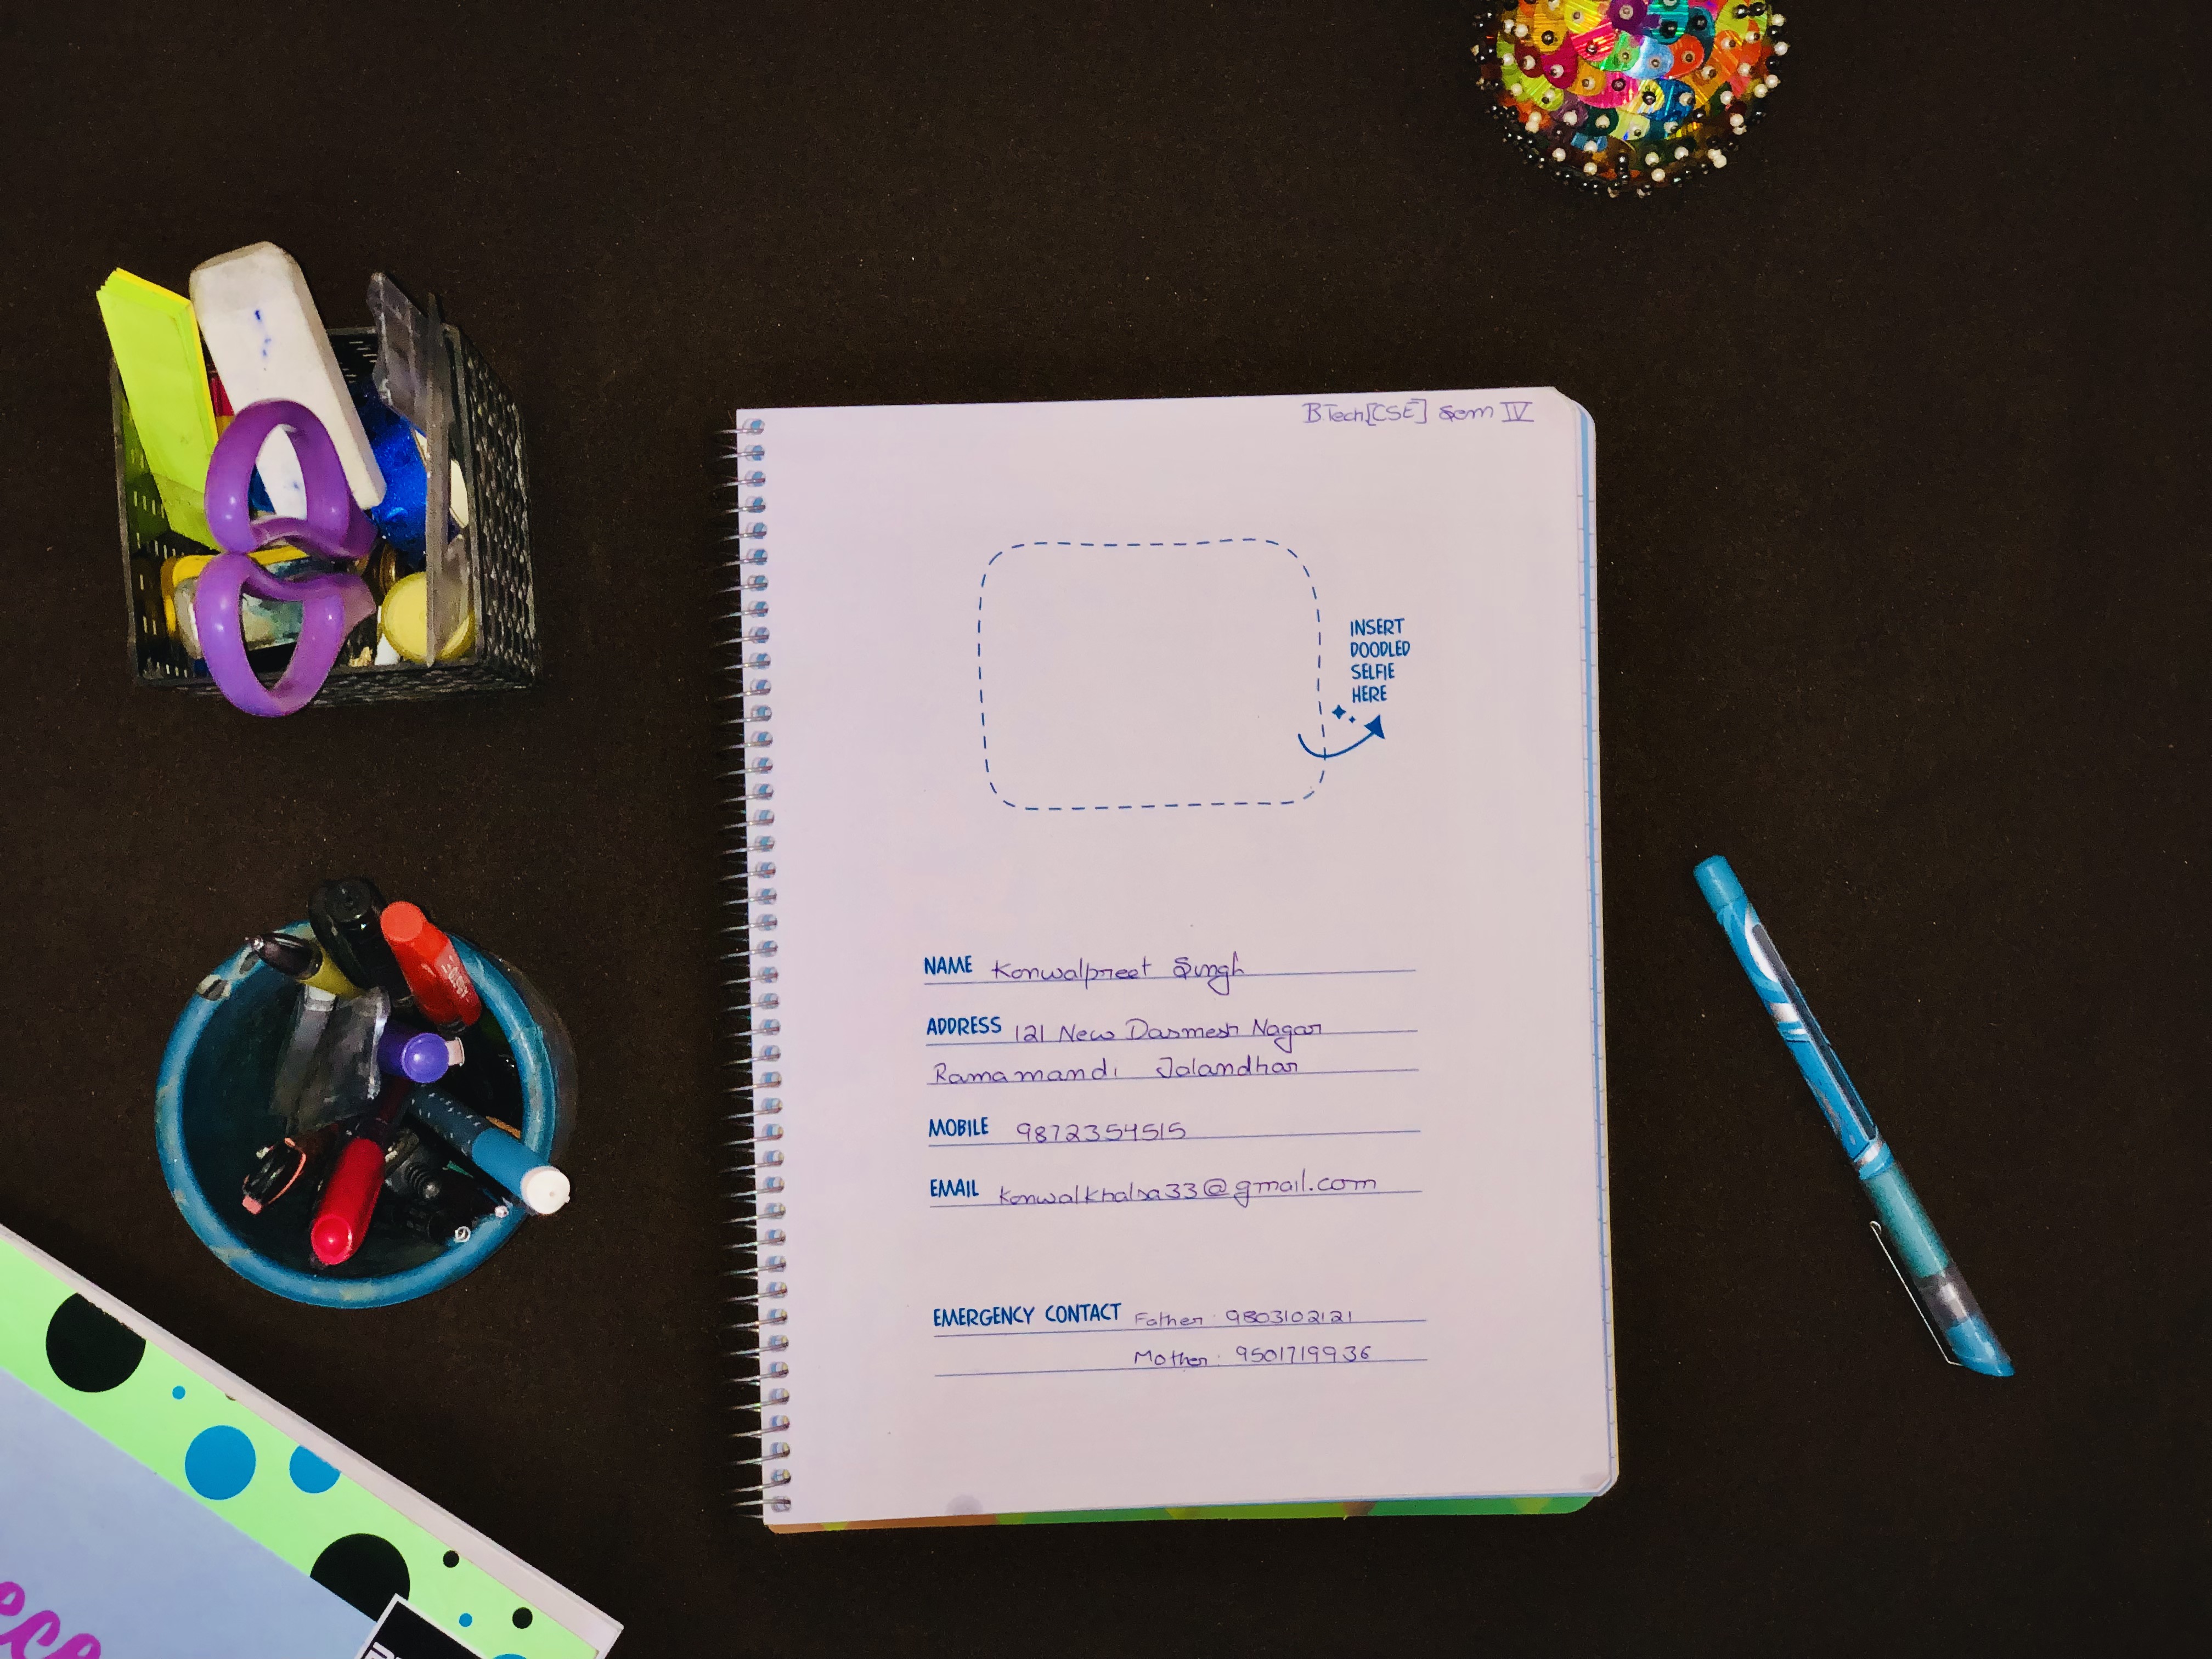 BTech[CSE] Sem IV
INSERT
DOODLED
SELFIE
HERE
NAME Konwalpreet Singh
ADDRESS 121 New Dasmesh Nagar
Ramamandi Jalandhar
MOBILE 9872354515
EMAIL Konwalkhalsa33@gmail.com
EMERGENCY CONTACT Father: 9803102121
Mother: 9501719936